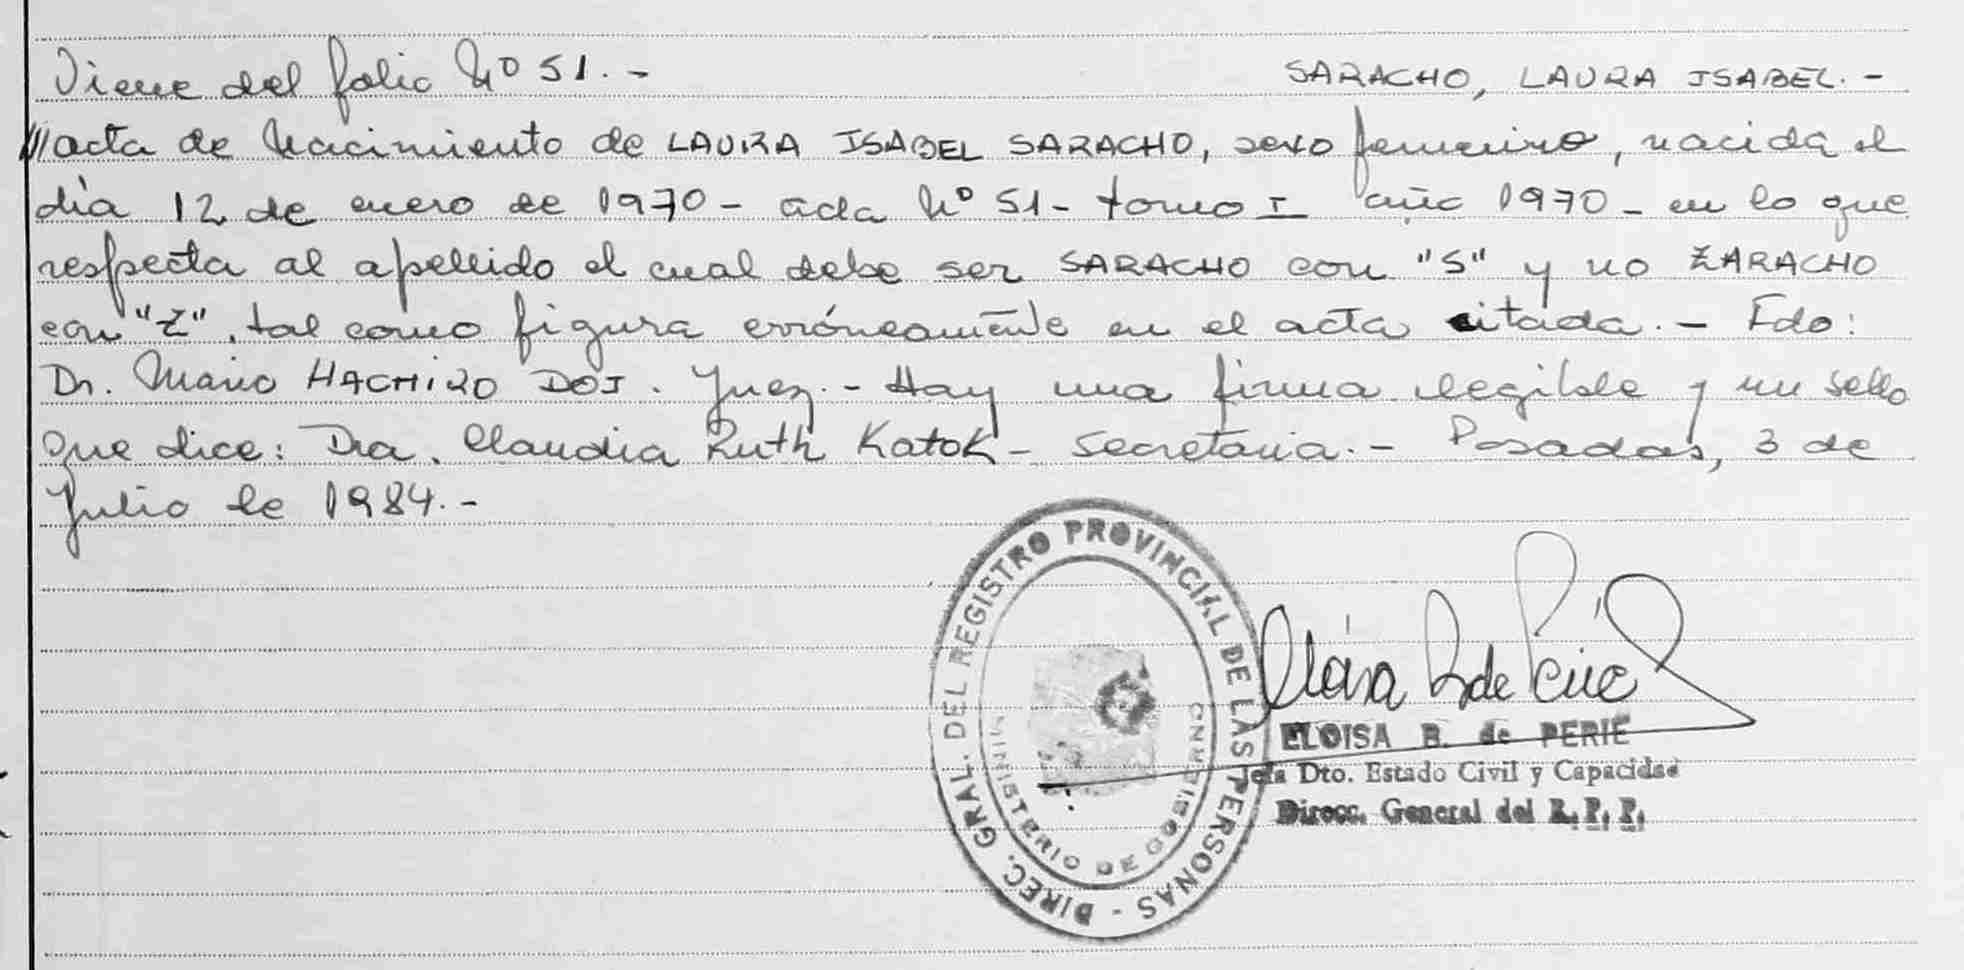 Viene del folio Nº 51.-
SARACHO, LAURA ISABEL.-
///acta de Nacimiento de LAURA ISABEL SARACHO, sexo femenino, nacida el
día 12 de enero de 1970 - acta Nº 51 - tomo I año 1970 - en lo que
respecta al apellido el cual debe ser SARACHO con "S" y no ZARACHO
con "Z", tal como figura erróneamente en el acta citada.- Fdo:
Dr. Mario HACHIRO DOI. Juez.- Hay una firma ilegible y un sello
que dice: Dra. Claudia Ruth Katok - Secretaria.- Posadas, 3 de
Julio de 1984.-
DIREC. GRAL. DEL REGISTRO PROVINCIAL DE LAS PERSONAS -
MINISTERIO DE GOBIERNO
ELOISA B. de PERIE
Jefa Dto. Estado Civil y Capacidad
Direcc. General del R. P. P.